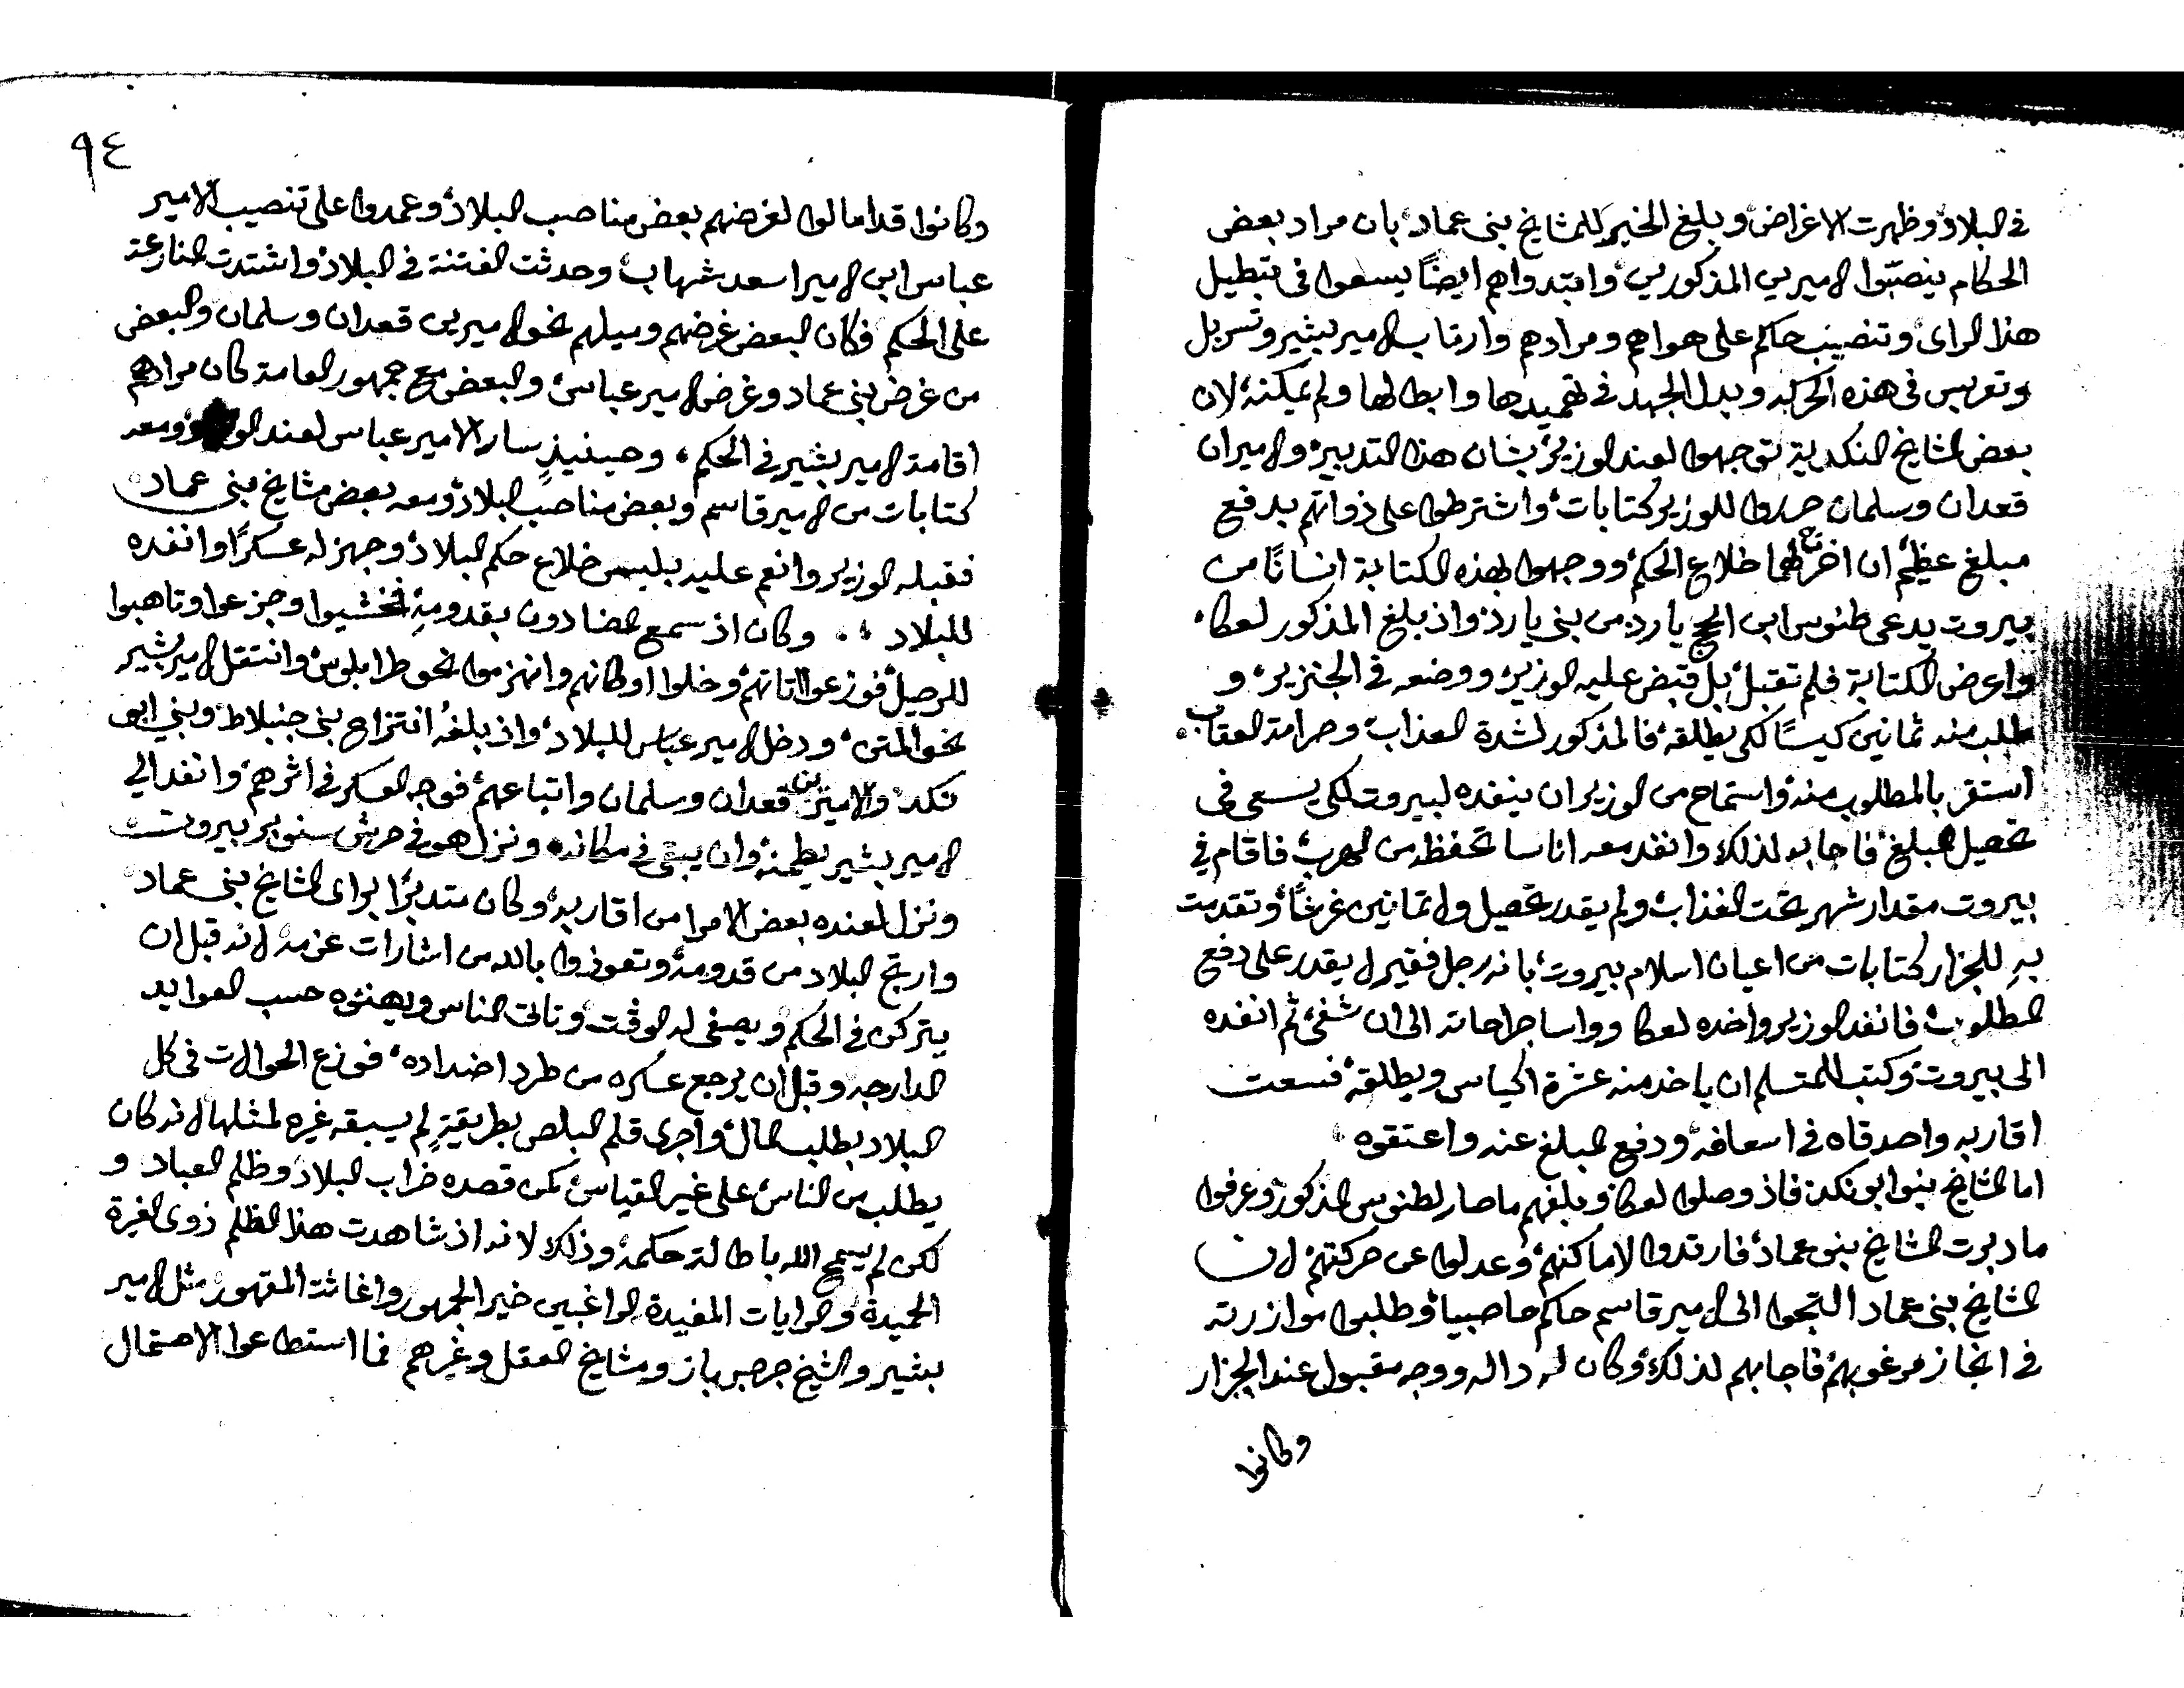 في البلاد وظهرت الاغراض وبلغ الخبر للمشايخ بني عماد بان مراد بعض
الحكام ينصبوا الاميرين المذكورين وابتدوا هم ايضاً يسعوا في تبطيل
هذا الراي وتنصيب حاكم على هواهم ومرادهم وارتاب الامير بشير وتسربل
في هذه الحركه وبدل الجهد في تهميدها وابطالها ولم يمكنه لان
بعض المشايخ النكديه توجهوا لعند الوزير بشان هذا التدبير والاميران
قعدان وسلمان حرروا للوزير كتابات واشترطوا على ذواتهم بدفع
مبلغ عظيم ان اخرج لهما خلاع الحكم ووجهوا بهذه الكتابة انساناً من
بيروت يدعى طنوس ابن الحج يارد من بني يارد واذ بلغ المذكور لعكا
واعرض الكتابة فلم تقبل بل قبض عليه الوزير ووضعه في الجنزير و
طلب منه ثمانين كيساً لكي يطلقه فالمذكور لشدة العذاب وصرامة العقاب
استقر بالمطلوب منه واستماح من الوزير ان ينفده لبيروت لكي يسعى في
تحصيل المبلغ فاجابه لذلك وانفد معه اناسا تحفظه من الهرب فاقام في
بيروت مقدار شهر تحت العذاب ولم يقدر تحصيل ولا ثمانين غرشاً وتقدمت
به للجزار كتابات من اعيان اسلام بيروت بانه رجل فقير لا يقدر على دفع
المطلوب فانفد الوزير واخده لعكا وواسا جراحاته الى ان شفي ثم انفده
الى بيروت وكتب للمتسلم ان ياخد منه عشرة اكياس ويطلقه فسعت
اقاربه واصدقاه في اسعافه ودفع المبلغ عنه واعتقوه
اما المشايخ بنوا بو نكد فاذ وصلوا لعكا وبلغهم ما صار لطنوس المذكور وعرفوا
ما دبرت المشايخ بنو عماد فارتدوا لاماكنهم وعدلوا عن حركتهم لان
المشايخ بني عماد التجوا الى الامير قاسم حاكم حاصبيا وطلبوا موازرته
في انجاز مرغوبهم فاجابهم لذلك وكان له داله ووجه مقبول عند الجزار
وكانوا
٩٤
وكانوا قد امالوا لغرضهم بعض مناصب البلاد وعمدوا على تنصيب الامير
عباس ابن الامير اسعد شهاب وحدثت الفتنة في البلاد واشتدت المنازعة
على الحكم فكان البعض غرضهم وميلهم نحو الاميرين قعدان وسلمان والبعض
من غرض بني عماد وغرض الامير عباس والبعض مع جمهور العامة كان مرادهم
اقامة الامير بشير في الحكم وحينيذٍ سار الامير عباس لعند ومعه
كتابات من الامير قاسم وبعض مناصب البلاد ومعه بعض مشايخ بني عماد
فقبله الوزير وانعم عليه بلبس خلاع حكم البلاد وجهز له عسكراً وانفده
للبلاد وكان اذ سمع المضادون بقدومه فخشيوا وجزعوا وتاهبوا
للرحيل فوزعوا اتاتهم وخلوا اوكانهم وانهزموا نحو طرابلوس وانتقل الامير بشير
نحو المتن ودخل الامير عباس للبلاد واذ بلغه انتزاح بني جنبلاط وبني ابي
نكد والاميرين قعدان وسلمان واتباعهم فوجه العسكر في اثرهم وانفد الي
الامير بشير يطمنه وان يبقى في مكانه ونزل هو في حرش سنوبر بيروت
ونزل لعنده بعض الامرا من اقاربه وكان متدبراً براي المشايخ بني عماد
وارتج البلاد من قدومه وتعوذوا بالله من اشارات عزمه لانه قبل ان
يتركن في الحكم ويصفى له الوقت وتاتي الناس ويهنئوه حسب العوايد
الدارجه وقبل ان يرجع عسكره من طرد اضداده فوزع الحوالات في كل
البلاد بطلب المال واجرى قلم البلص بطريقةٍ لم يسبقه غيره لمثلها لانه كان
يطلب من الناس على غير القياس كمن قصده خراب البلاد وظلم العباد و
لكن لم يسمح الله باطالة حكمه وذلك لانه اذ شاهدت هذا الظلم ذوي الغيرة
الحميدة والرايات المفيدة الراغبين خير الجمهور واغاثت المقهور مثل الامير
بشير والشيخ جرجس باز ومشايخ العقل وغيرهم فما استطاعوا الاحتمال